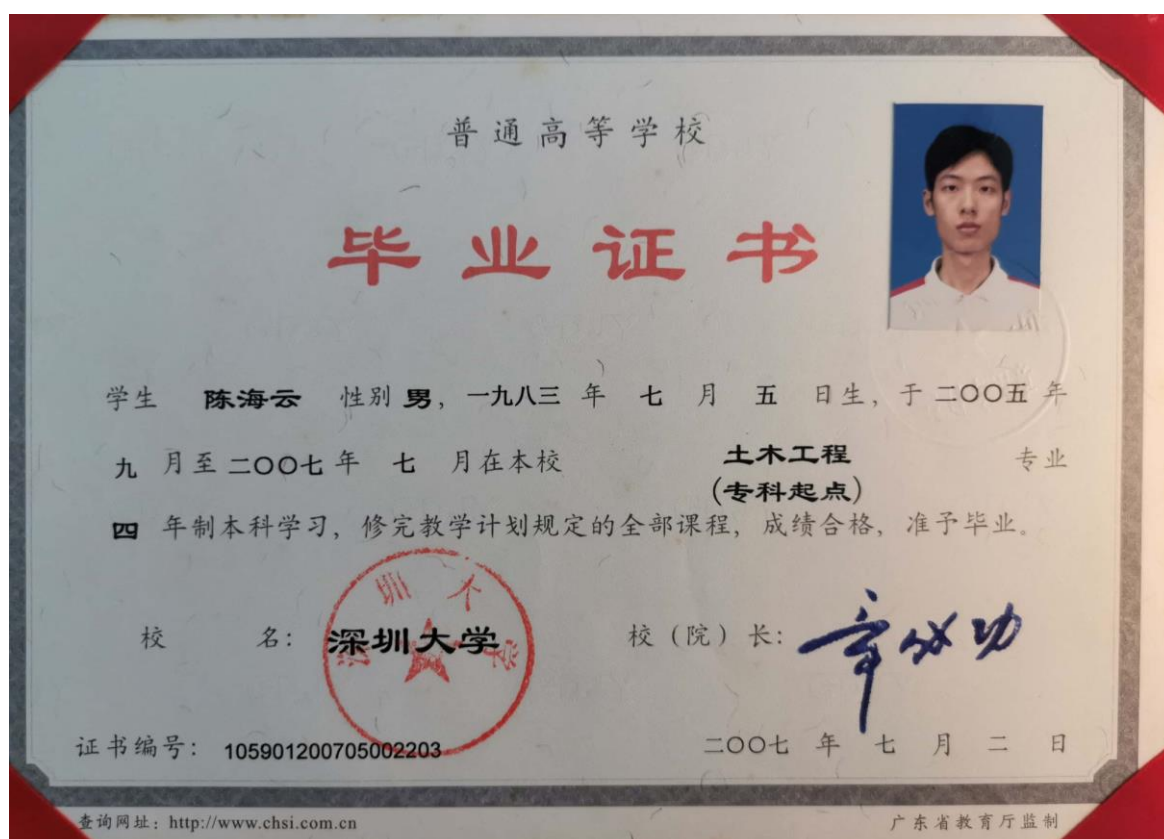 普通高等学校
毕业证书
学生 陈海云 性别 男，一九八三 年 七 月 五 日生，于 二〇〇五 年
九 月至 二〇〇七 年 七 月在本校 土木工程 专业
(专科起点)
四 年制本科学习，修完教学计划规定的全部课程，成绩合格，准予毕业。
深圳大学
校 名： 深圳大学 校（院）长： 章必功
证书编号： 105901200705002203 二〇〇七 年 七 月 二 日
查询网址：http://www.chsi.com.cn 广东省教育厅监制